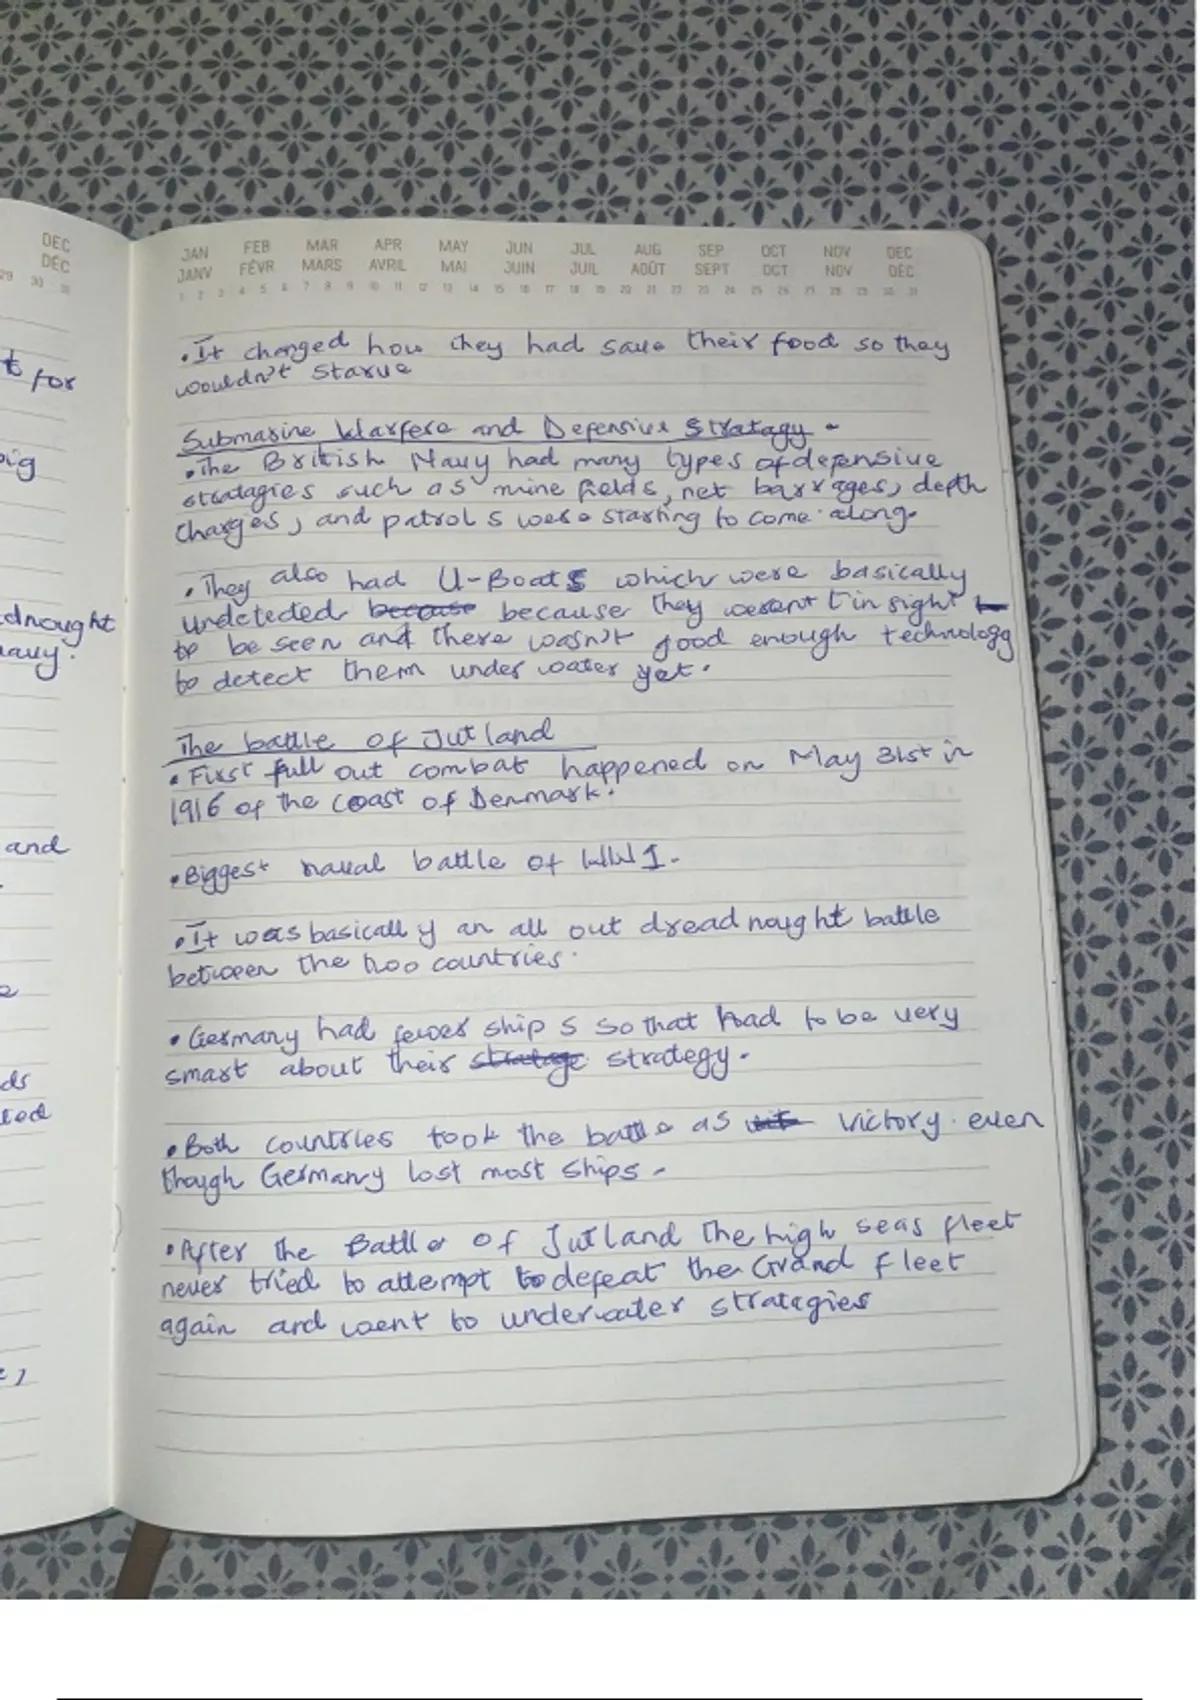 DEC
DÉC
29 30 31
t for
big
dnought
navy.
and
ds
ted
JAN FEB MAR APR MAY JUN JUL AUG SEP OCT NOV DEC
JANV FÉVR MARS AVRIL MAI JUIN JUIL AOÛT SEPT OCT NOV DÉC
1 2 3 4 5 6 7 8 9 10 11 12 13 14 15 16 17 18 19 20 21 22 23 24 25 26 27 28 29 30 31
• It changed how they had save their food so they
wouldn't starve
Submarine Warfere and Defensive Stratagy -
• The British Navy had many types of defensive
stratagies such as mine fields, net barrages, depth
charges, and patrols were starting to come along.
• They also had U-Boats which were basically
undeteded because because they weren't in sight
to be seen and there wasn't good enough technology
to detect them under water yet.
The battle of Jutland
• First full out combat happened on May 31st in
1916 of the coast of Denmark.
• Biggest naval battle of WW1.
• It was basically an all out dreadnought battle
between the two countries.
• Germany had fewer ships so that had to be very
smart about their stratage strategy.
• Both countries took the battle as victory even
though Germany lost most ships.
• After the Battle of Jutland the high seas fleet
never tried to attempt to defeat the Grand fleet
again and went to underwater stratagies